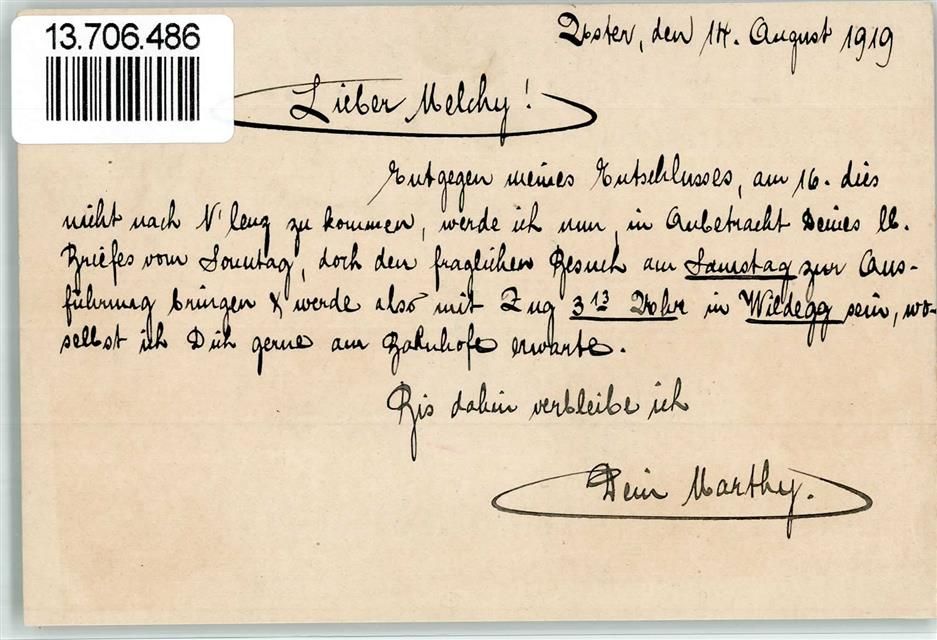 13.706.486
Uster, den 14. August 1919
Lieber Melchy!
Entgegen meines Entschlusses, am 16. dies
nicht nach N'lenz zu kommen, werde ich nun, in Anbetracht Deines lb.
Briefes vom Sonntag, doch den fraglichen Besuch am Samstag zur Aus-
führung bringen & werde also mit Zug 3 13 Uhr in Wildegg sein, wo-
selbst ich Dich gerne am Bahnhofe erwarte.
Bis dahin verbleibe ich
Dein Marthy.